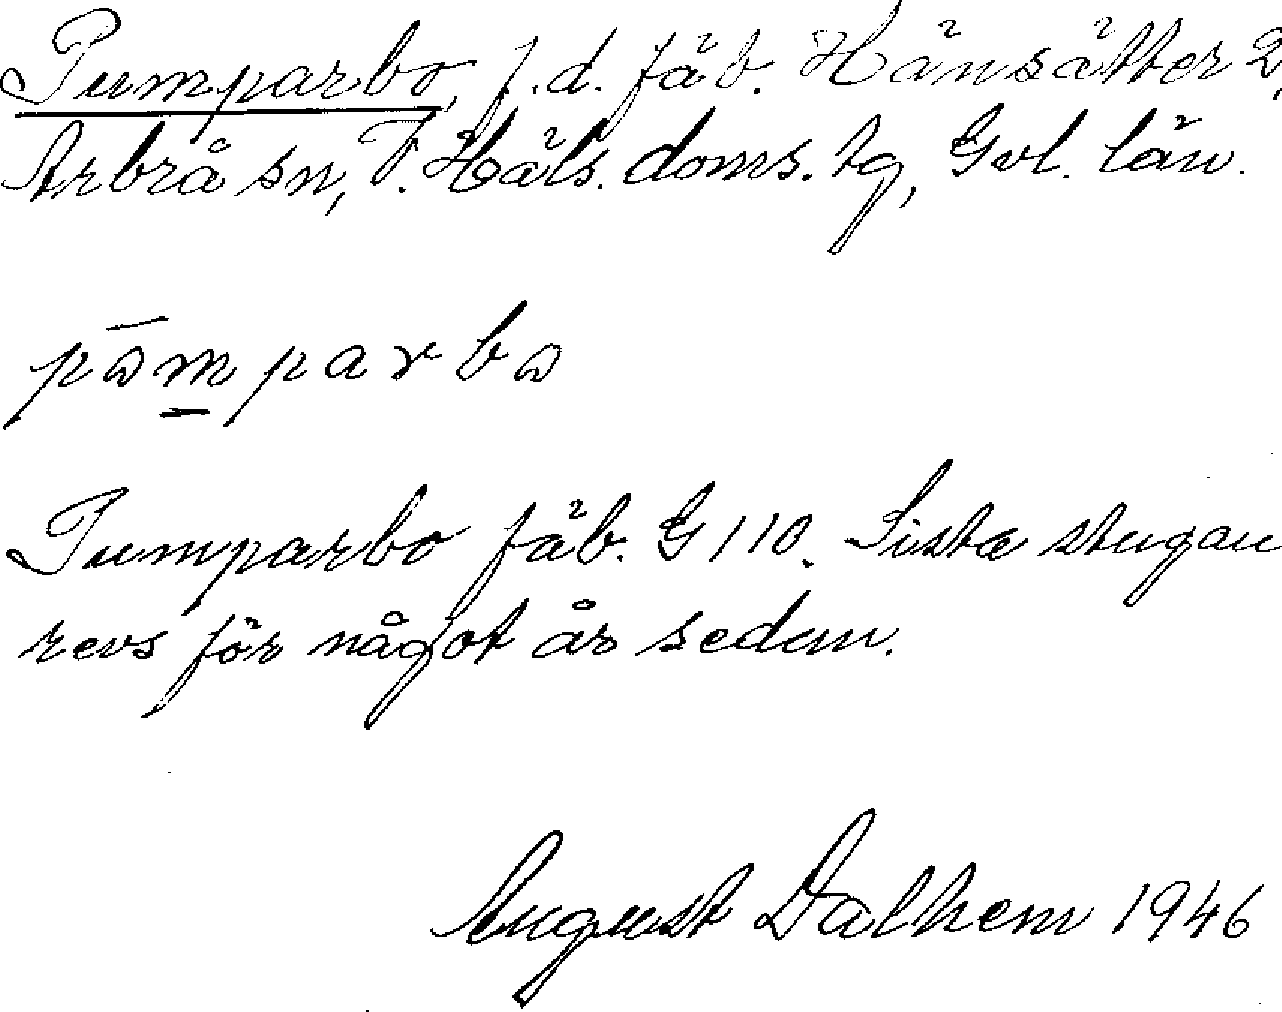 Pumparbo, f.d. fäb. Hänsätter 2,
Arbrå sn, V. Häls. doms. tg, Gvl. län.
pɷ̄m̲parbɷ
Pumparbo fäb. G 110. Sista stugan
revs för något år sedan.
August Dalhem 1946